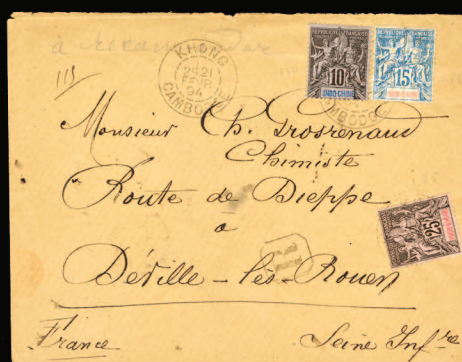 à recommander
115
KHONG
21
FEVR
94
CAMBODGE
REPUBLIQUE FRANCAISE
10
INDO-CHINE
REPUBLIQUE FRANCAISE
15
INDO-CHINE
CAMBODGE
Monsieur Ch. Grosrenaud
Chimiste
Route de Dieppe
à
Déville-lès-Rouen
25
France
Seine Infre